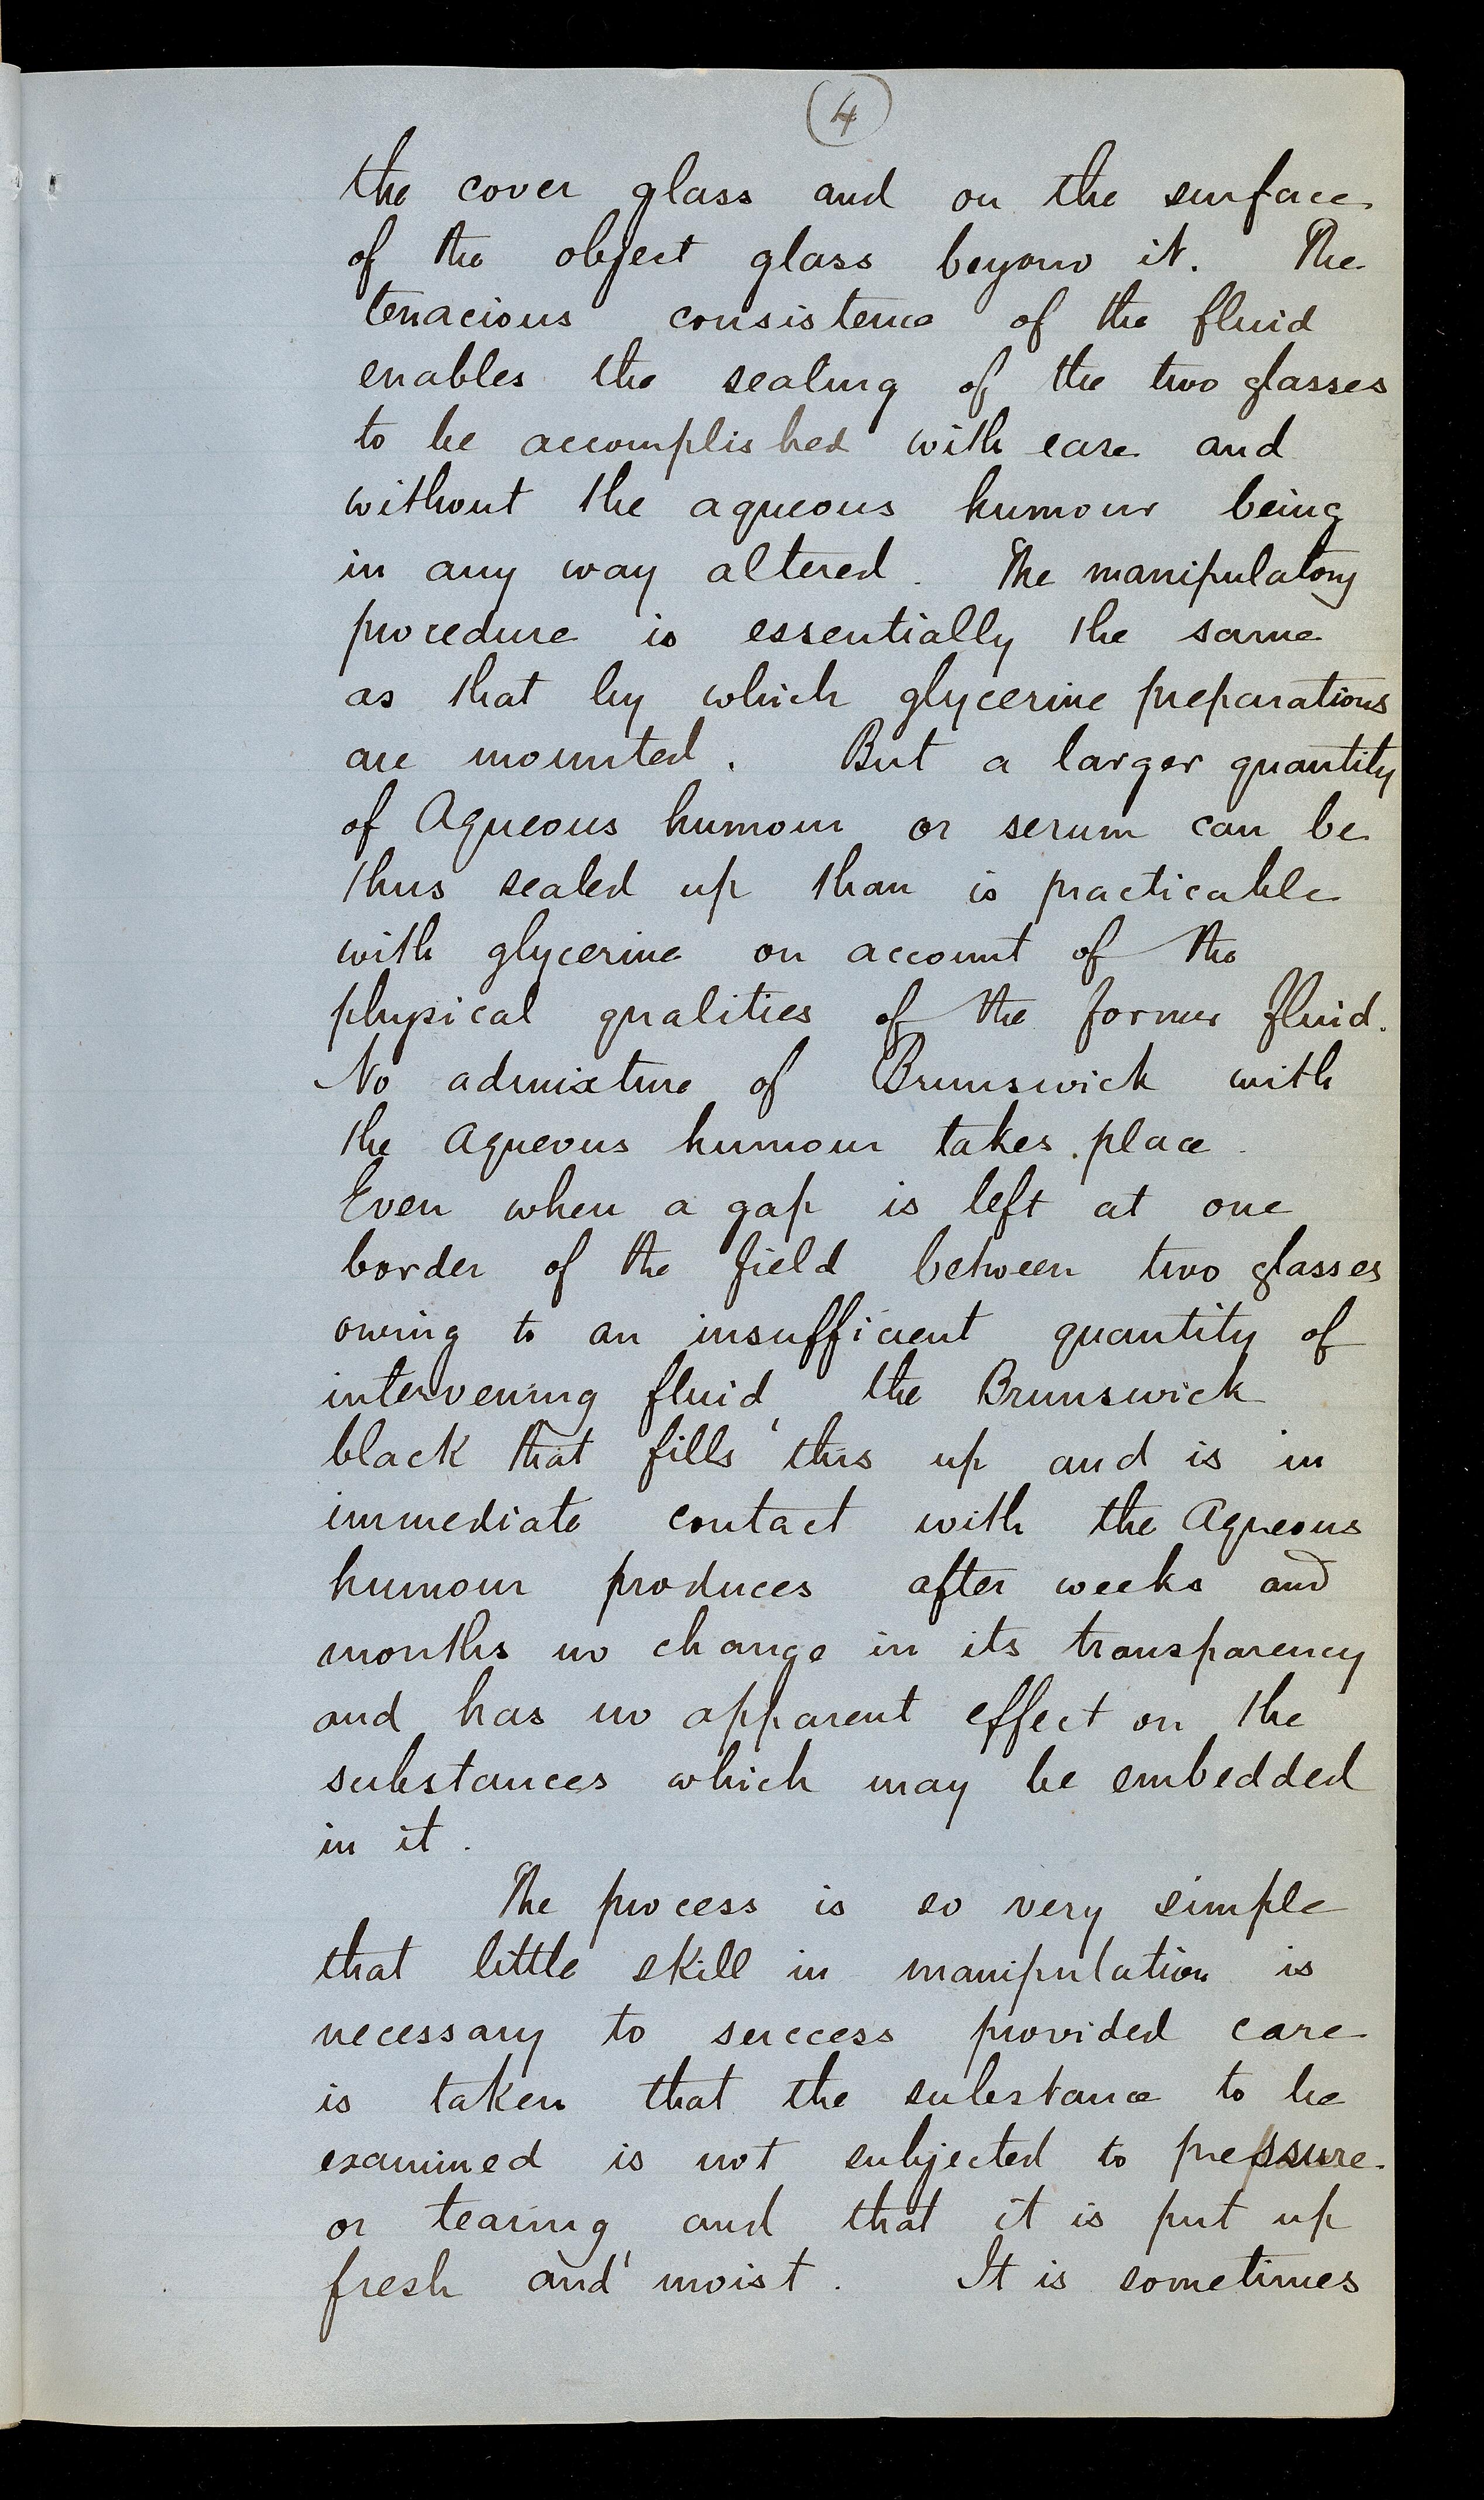 4
the cover glass and on the surface
of the object glass beyond it. The
tenacious consistence of the fluid
enables the sealing of the two glasses
to be accomplished with ease and
without the aqueous humour being
in any way altered. The manipulatory
procedure is essentially the same
as that by which glycerine preparations
are mounted. But a larger quantity
of Aqueous humour or serum can be
thus sealed up than is practicable
with glycerine on account of the
physical qualities of the former fluid.
No admixture of Brunswick with
the Aqueous humour takes place.
Even when a gap is left at one
border of the field between two glasses
owing to an insufficient quantity of
intervening fluid, the Brunswick
black that fills this up and is in
immediate contact with the Aqueous
humour produces after weeks and
months no change in its transparency
and has no apparent effect on the
substances which may be embedded
in it.
The process is so very simple
that little skill in manipulation is
necessary to success provided care
is taken that the substance to be
examined is not subjected to pressure
or tearing and that it is put up
fresh and moist. It is sometimes